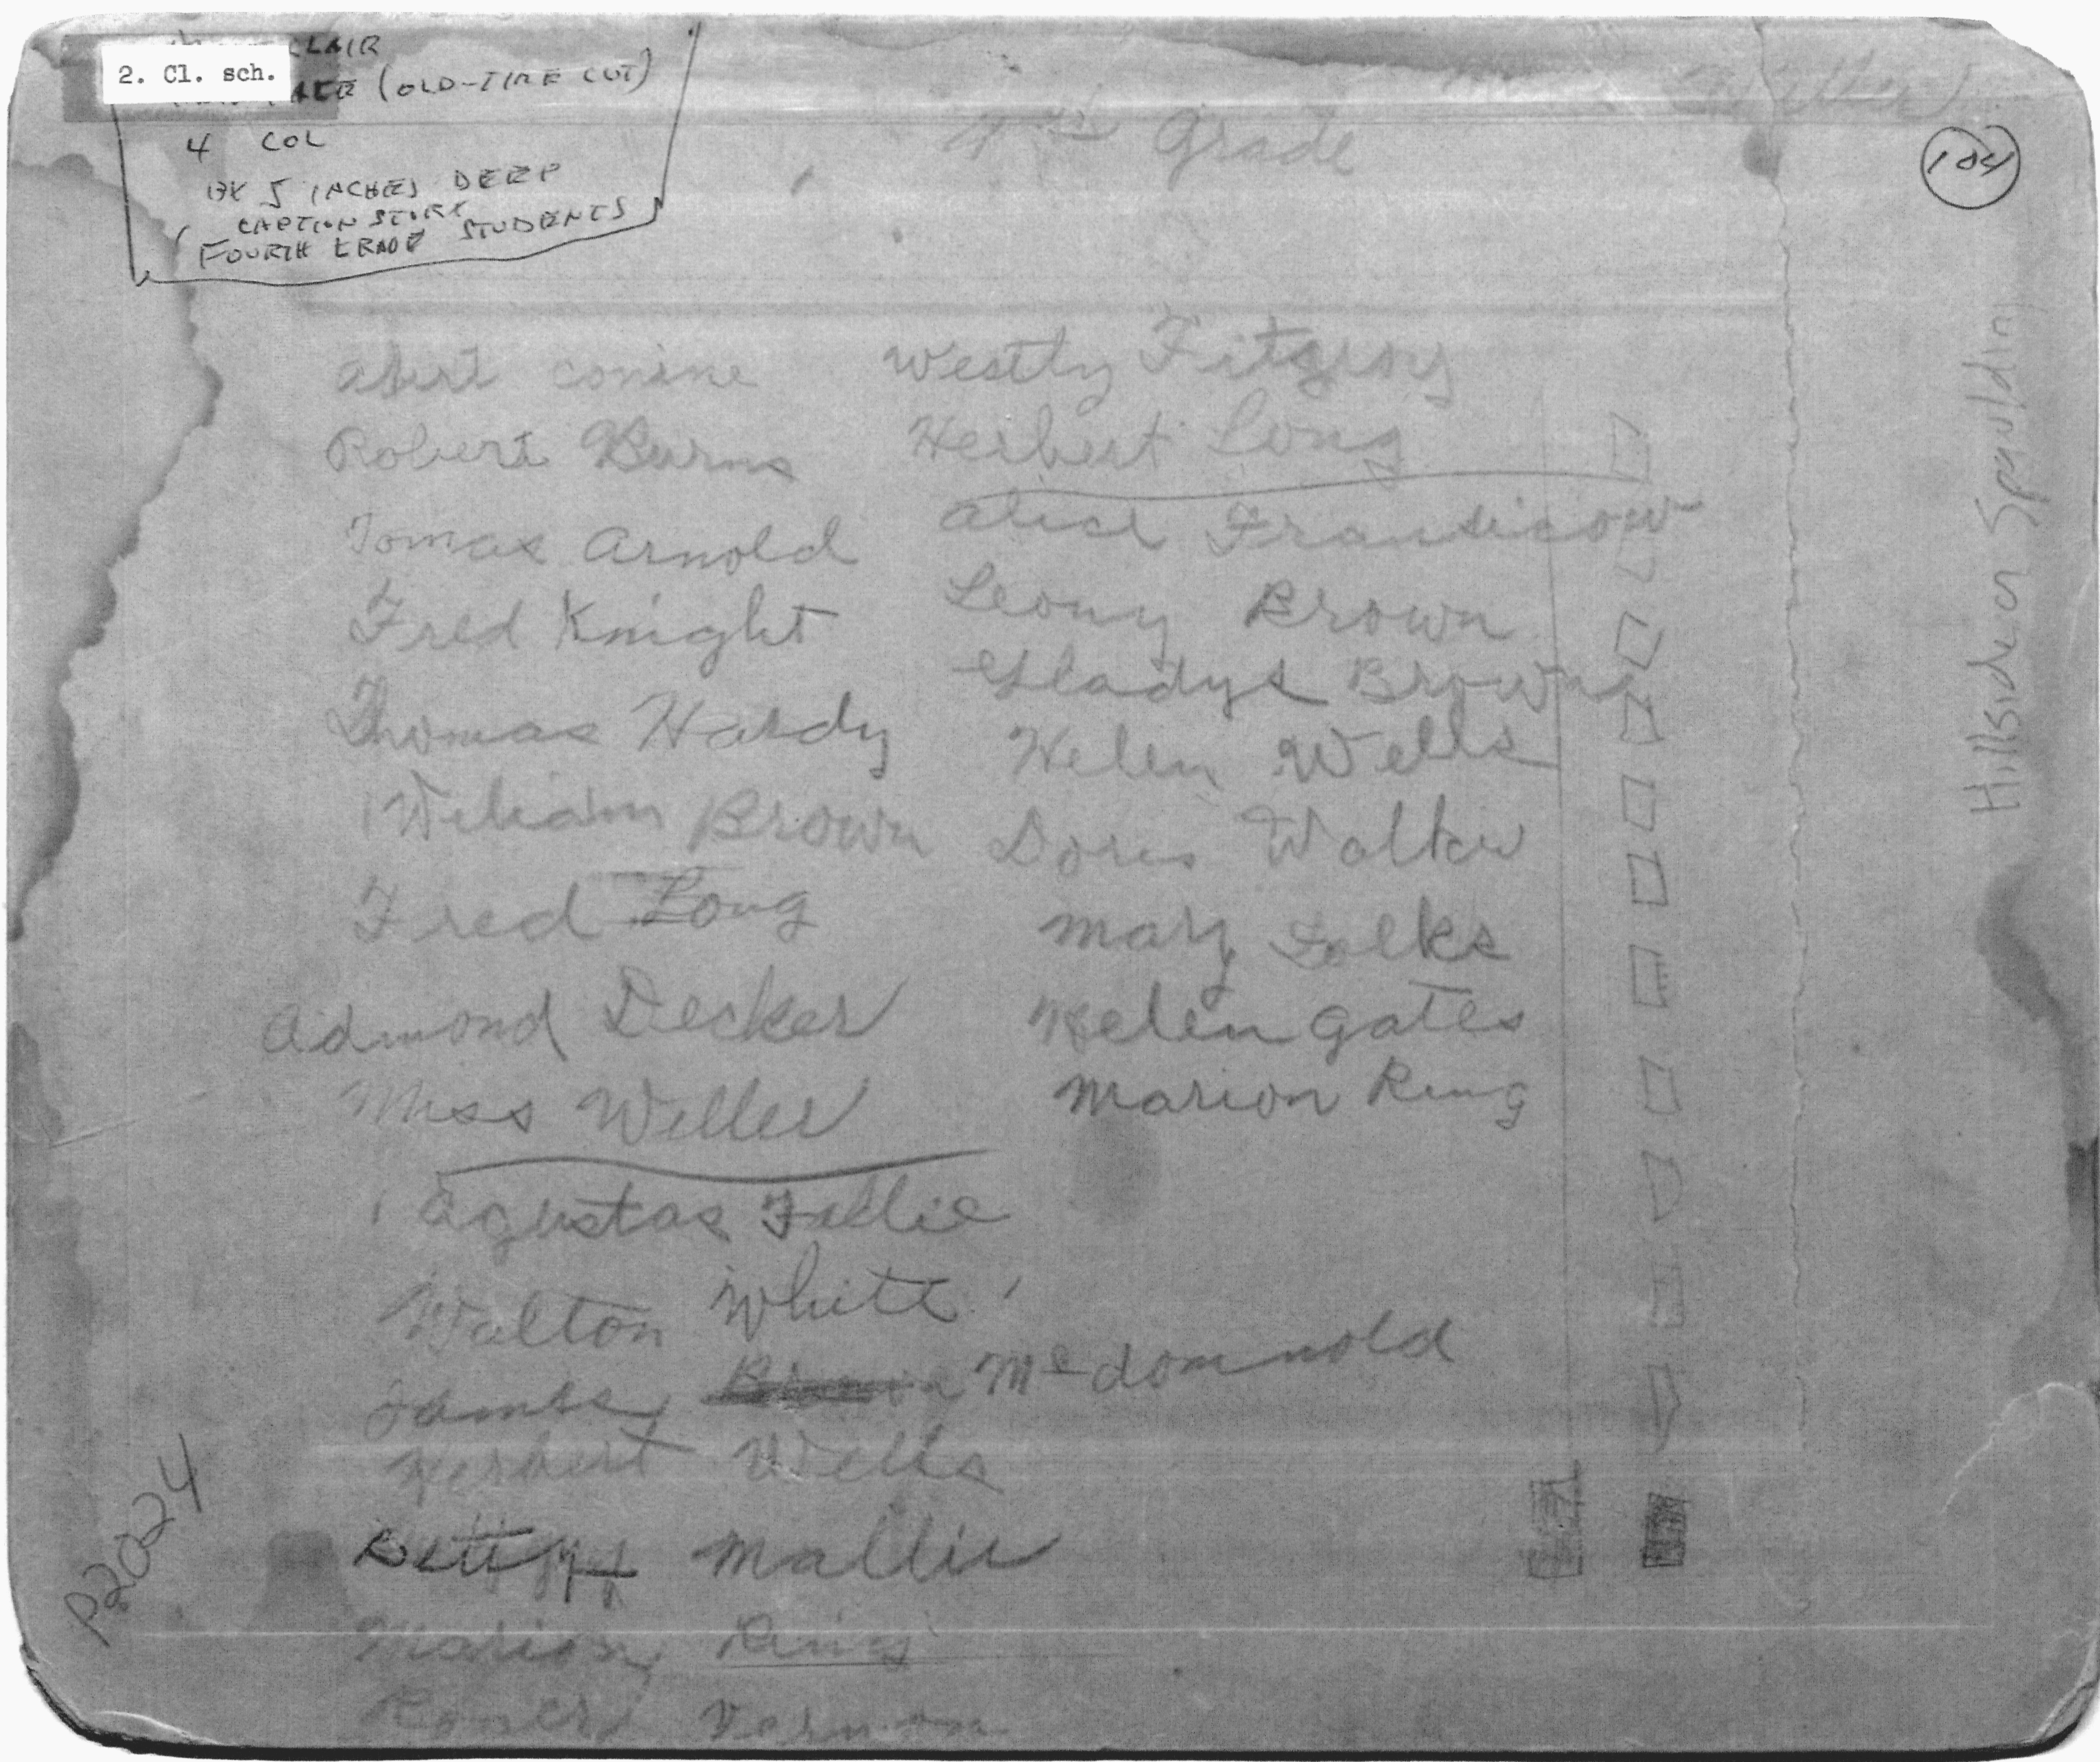 2. Cl. sch.
CLAIR
(OLD-TIME CUT)
4 COL
BY 5 INCHES DEEP
CAPTION STORY
FOURTH GRADE STUDENTS
4th Grade
Miller
104
Hillside or Spaulding
Albert conine
Robert Burns
Tomas Arnold
Fred Knight
Thomas Hardy
William Brown
Fred Long
Admond Decker
Miss Weller
Agustas Fallie
Walton White
James McDonnold
Herbert Wells
Betty Mallie
Marion Ring
Robert Vernon
Westly Fitzgroy
Herbert Long
Alice
Leony Brown
Gladys Brown
Helen Wells
Doris Walker
Mary Folks
Helen Gates
Marion Ring
P2024